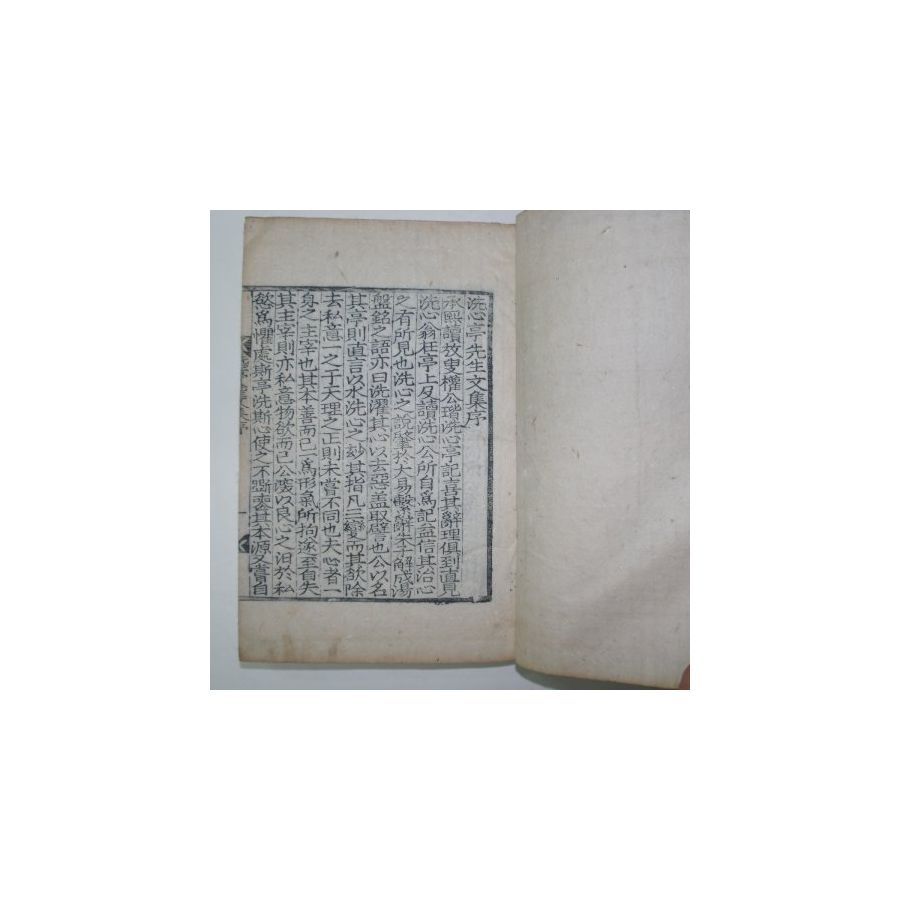 洗心亭先生文集序
承熙讀放叟權公瑎洗心亭記喜其辭理俱到直見
洗心翁在亭上及讀洗心公所自爲記益信其治心
之有所見也洗心之說肇於大易繫辭朱子解成湯
盤銘之語亦曰洗濯其心以去惡盖取譬也公以名
其亭則直言以水洗心之玅其指凡三變而其欲除
去私意一之于天理之正則未嘗不同也夫心者一
身之主宰也其本善而已一爲形氣所拘遂至自失
其主宰則亦私意物欲而已公深以良心之汩於私
慾爲懼處斯亭洗斯心使之不爽其本源